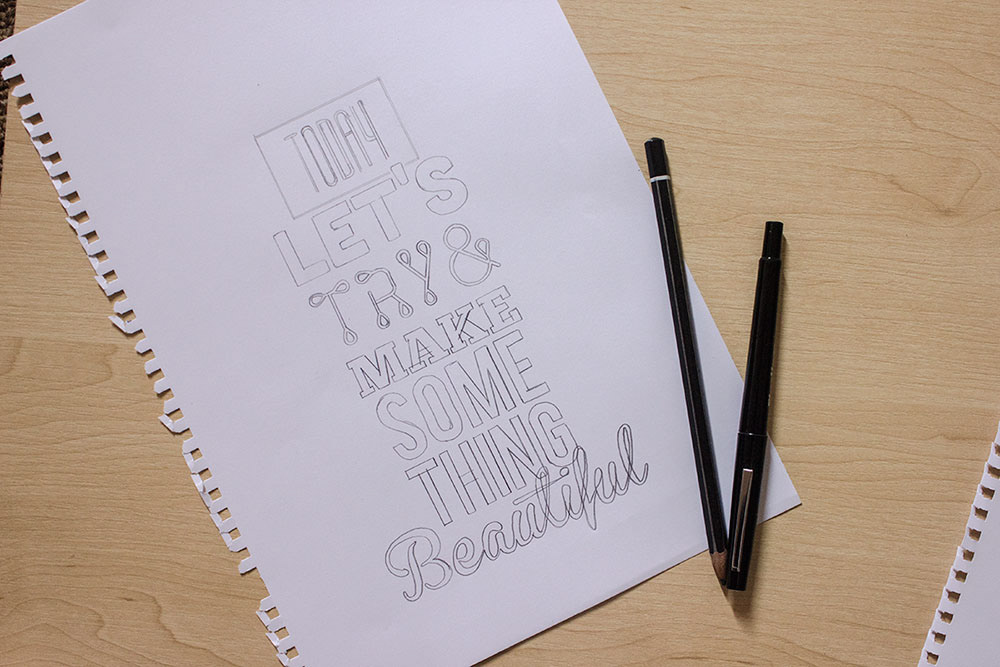 TODAY
LET'S
TRY &
MAKE
SOME
THING
Beautiful